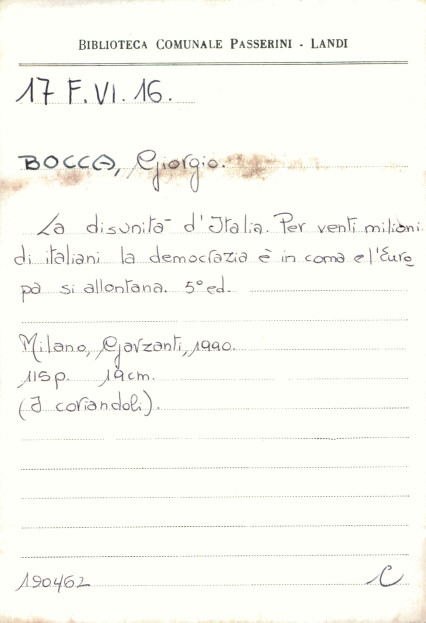 BIBLIOTECA COMUNALE PASSERINI - LANDI
17 F. VI. 16.
BOCCA, Giorgio.
La disunità d'Italia. Per venti milioni
di italiani la democrazia è in coma e l'Euro
pa si allontana. 5° ed.
Milano, Garzanti, 1990.
115 p. 19 cm.
(I coriandoli).
190462 C